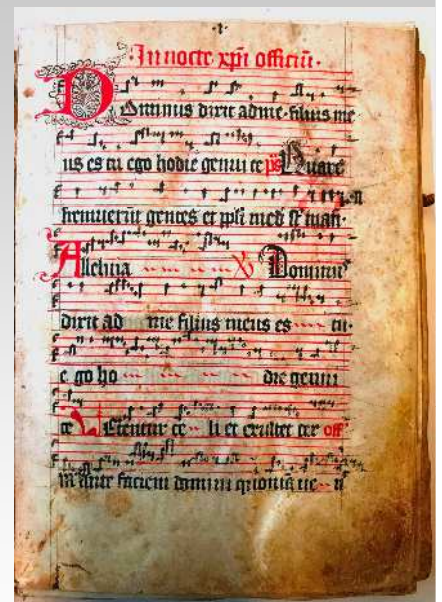 ·1·
In nocte xpi officiu·
Dominus dixit ad me· filius me
us es tu ego hodie genui te ps Quare
fremuerut gentes et ppli med st inan·
Alleluia V Dominus
dixit ad me filius meus es tu·
e go ho die genui
te Letentur ce li et exultet ter off
in ante faciem domini qvoniā ue n